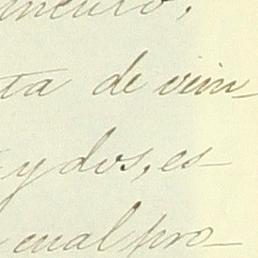 ta de vein-
y dos, es-
cual pro-